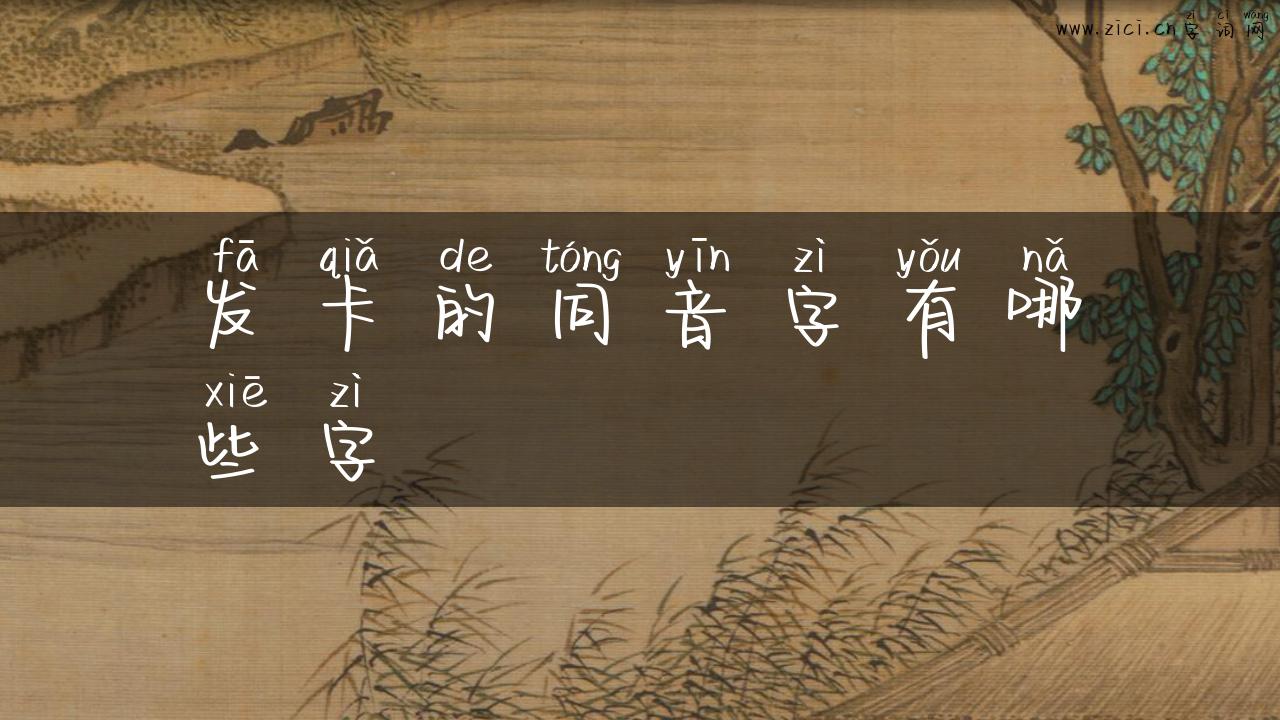 zì cí wǎng
www.zici.cn 字词网
fā qiǎ de tóng yīn zì yǒu nǎ
发卡的同音字有哪
xiē zì
些字